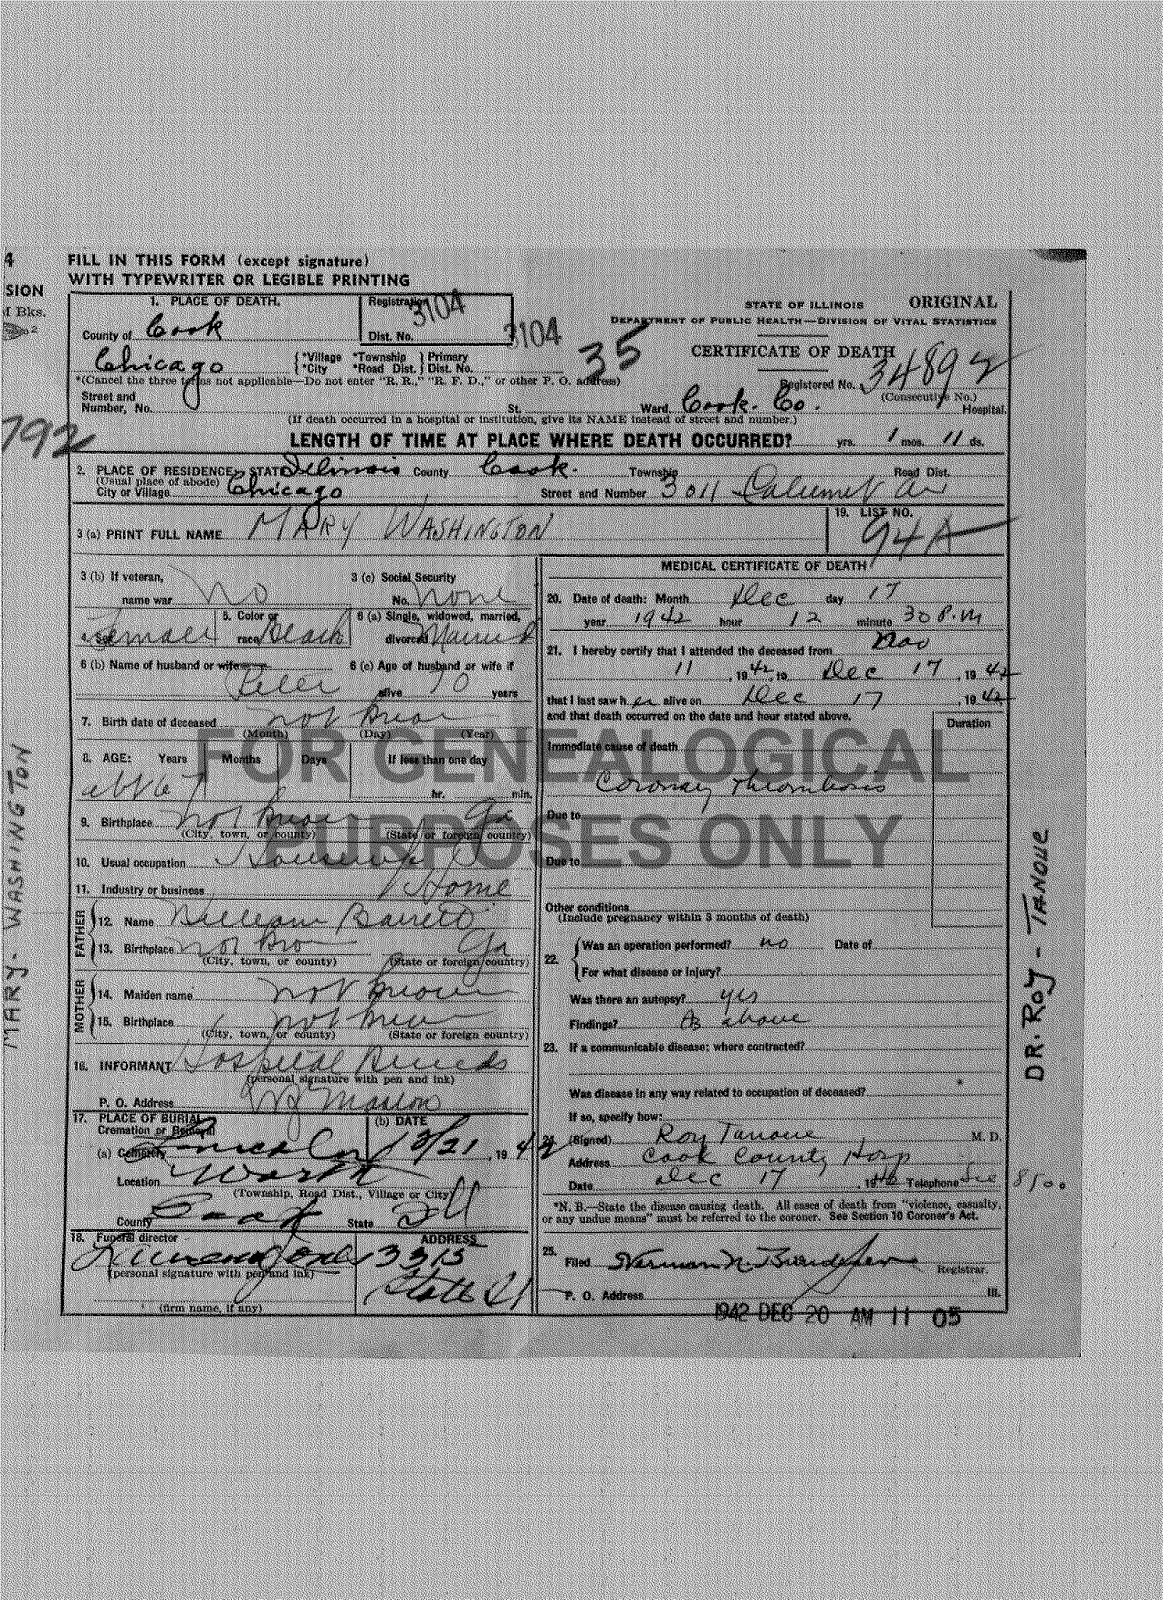 4
SION
Bks.
792
MARY - WASHINGTON
FILL IN THIS FORM (except signature)
WITH TYPEWRITER OR LEGIBLE PRINTING
1. PLACE OF DEATH.
Registration 3104
Dist. No.
3104
35
STATE OF ILLINOIS ORIGINAL
DEPARTMENT OF PUBLIC HEALTH—DIVISION OF VITAL STATISTICS
CERTIFICATE OF DEATH
County of Cook
Chicago { *Village *Township } Primary
*City *Road Dist. } Dist. No.
Registered No. 34892
(Consecutive No.)
*(Cancel the three terms not applicable—Do not enter "R. R.," "R. F. D.," or other P. O. address)
Street and
Number, No. St. Ward, Cook. Co. Hospital.
(If death occurred in a hospital or institution, give its NAME instead of street and number.)
LENGTH OF TIME AT PLACE WHERE DEATH OCCURRED? yrs. 1 mos. 11 ds.
2. PLACE OF RESIDENCE: STATE Illinois County Cook. Township Road Dist.
(Usual place of abode)
City or Village Chicago Street and Number 3011 Calumet Av
3 (a) PRINT FULL NAME MARY WASHINGTON
19. LIST NO.
94A
3 (b) If veteran,
name war No
3 (c) Social Security
No. None
Female
5. Color or
race Black
6 (a) Single, widowed, married,
divorced Married
6 (b) Name of husband or wife
Peter
6 (c) Age of husband or wife if
alive 70 years
7. Birth date of deceased not known
(Month) (Day) (Year)
8. AGE: Years Months Days If less than one day
hr. min.
9. Birthplace not known Ga
(City, town, or county) (State or foreign country)
10. Usual occupation Housewife
11. Industry or business Home
FATHER
12. Name William Barrett
13. Birthplace Ga
(City, town, or county) (State or foreign country)
MOTHER
14. Maiden name not known
15. Birthplace not known
(City, town, or county) (State or foreign country)
16. INFORMANT Hospital Records
(personal signature with pen and ink)
P. O. Address Marion
17. PLACE OF BURIAL
Cremation or Removal
(b) DATE
(a) Cemetery Lincoln 12/21, 1942
Location Worth
(Township, Road Dist., Village or City)
County Cook State Ill
18. Funeral director ADDRESS
3315
(personal signature with pen and ink)
State St
(firm name, if any)
MEDICAL CERTIFICATE OF DEATH
20. Date of death: Month Dec day 17
year 1942 hour 12 minute 30 P.M
21. I hereby certify that I attended the deceased from Nov
11, 1942, to Dec 17, 1942
that I last saw her alive on Dec 17, 1942
and that death occurred on the date and hour stated above.
Duration
Immediate cause of death
Coronary Thrombosis
Due to
Due to
Other conditions
(Include pregnancy within 3 months of death)
22. { Was an operation performed? no Date of
For what disease or injury?
Was there an autopsy? yes
Findings? As above
23. If a communicable disease; where contracted?
Was disease in any way related to occupation of deceased?
If so, specify how:
24. (Signed) Roy Tanoue M. D.
Address Cook County Hosp
Date Dec 17, 1942 Telephone See 8500
*N. B.—State the disease causing death. All cases of death from "violence, casualty,
or any undue means" must be referred to the coroner. See Section 10 Coroner's Act.
25. Filed Herman N. Bundesen Registrar.
P. O. Address Ill.
1942 DEC 20 AM 11 05
DR. ROY - TANOUE
FOR GENEALOGICAL
PURPOSES ONLY